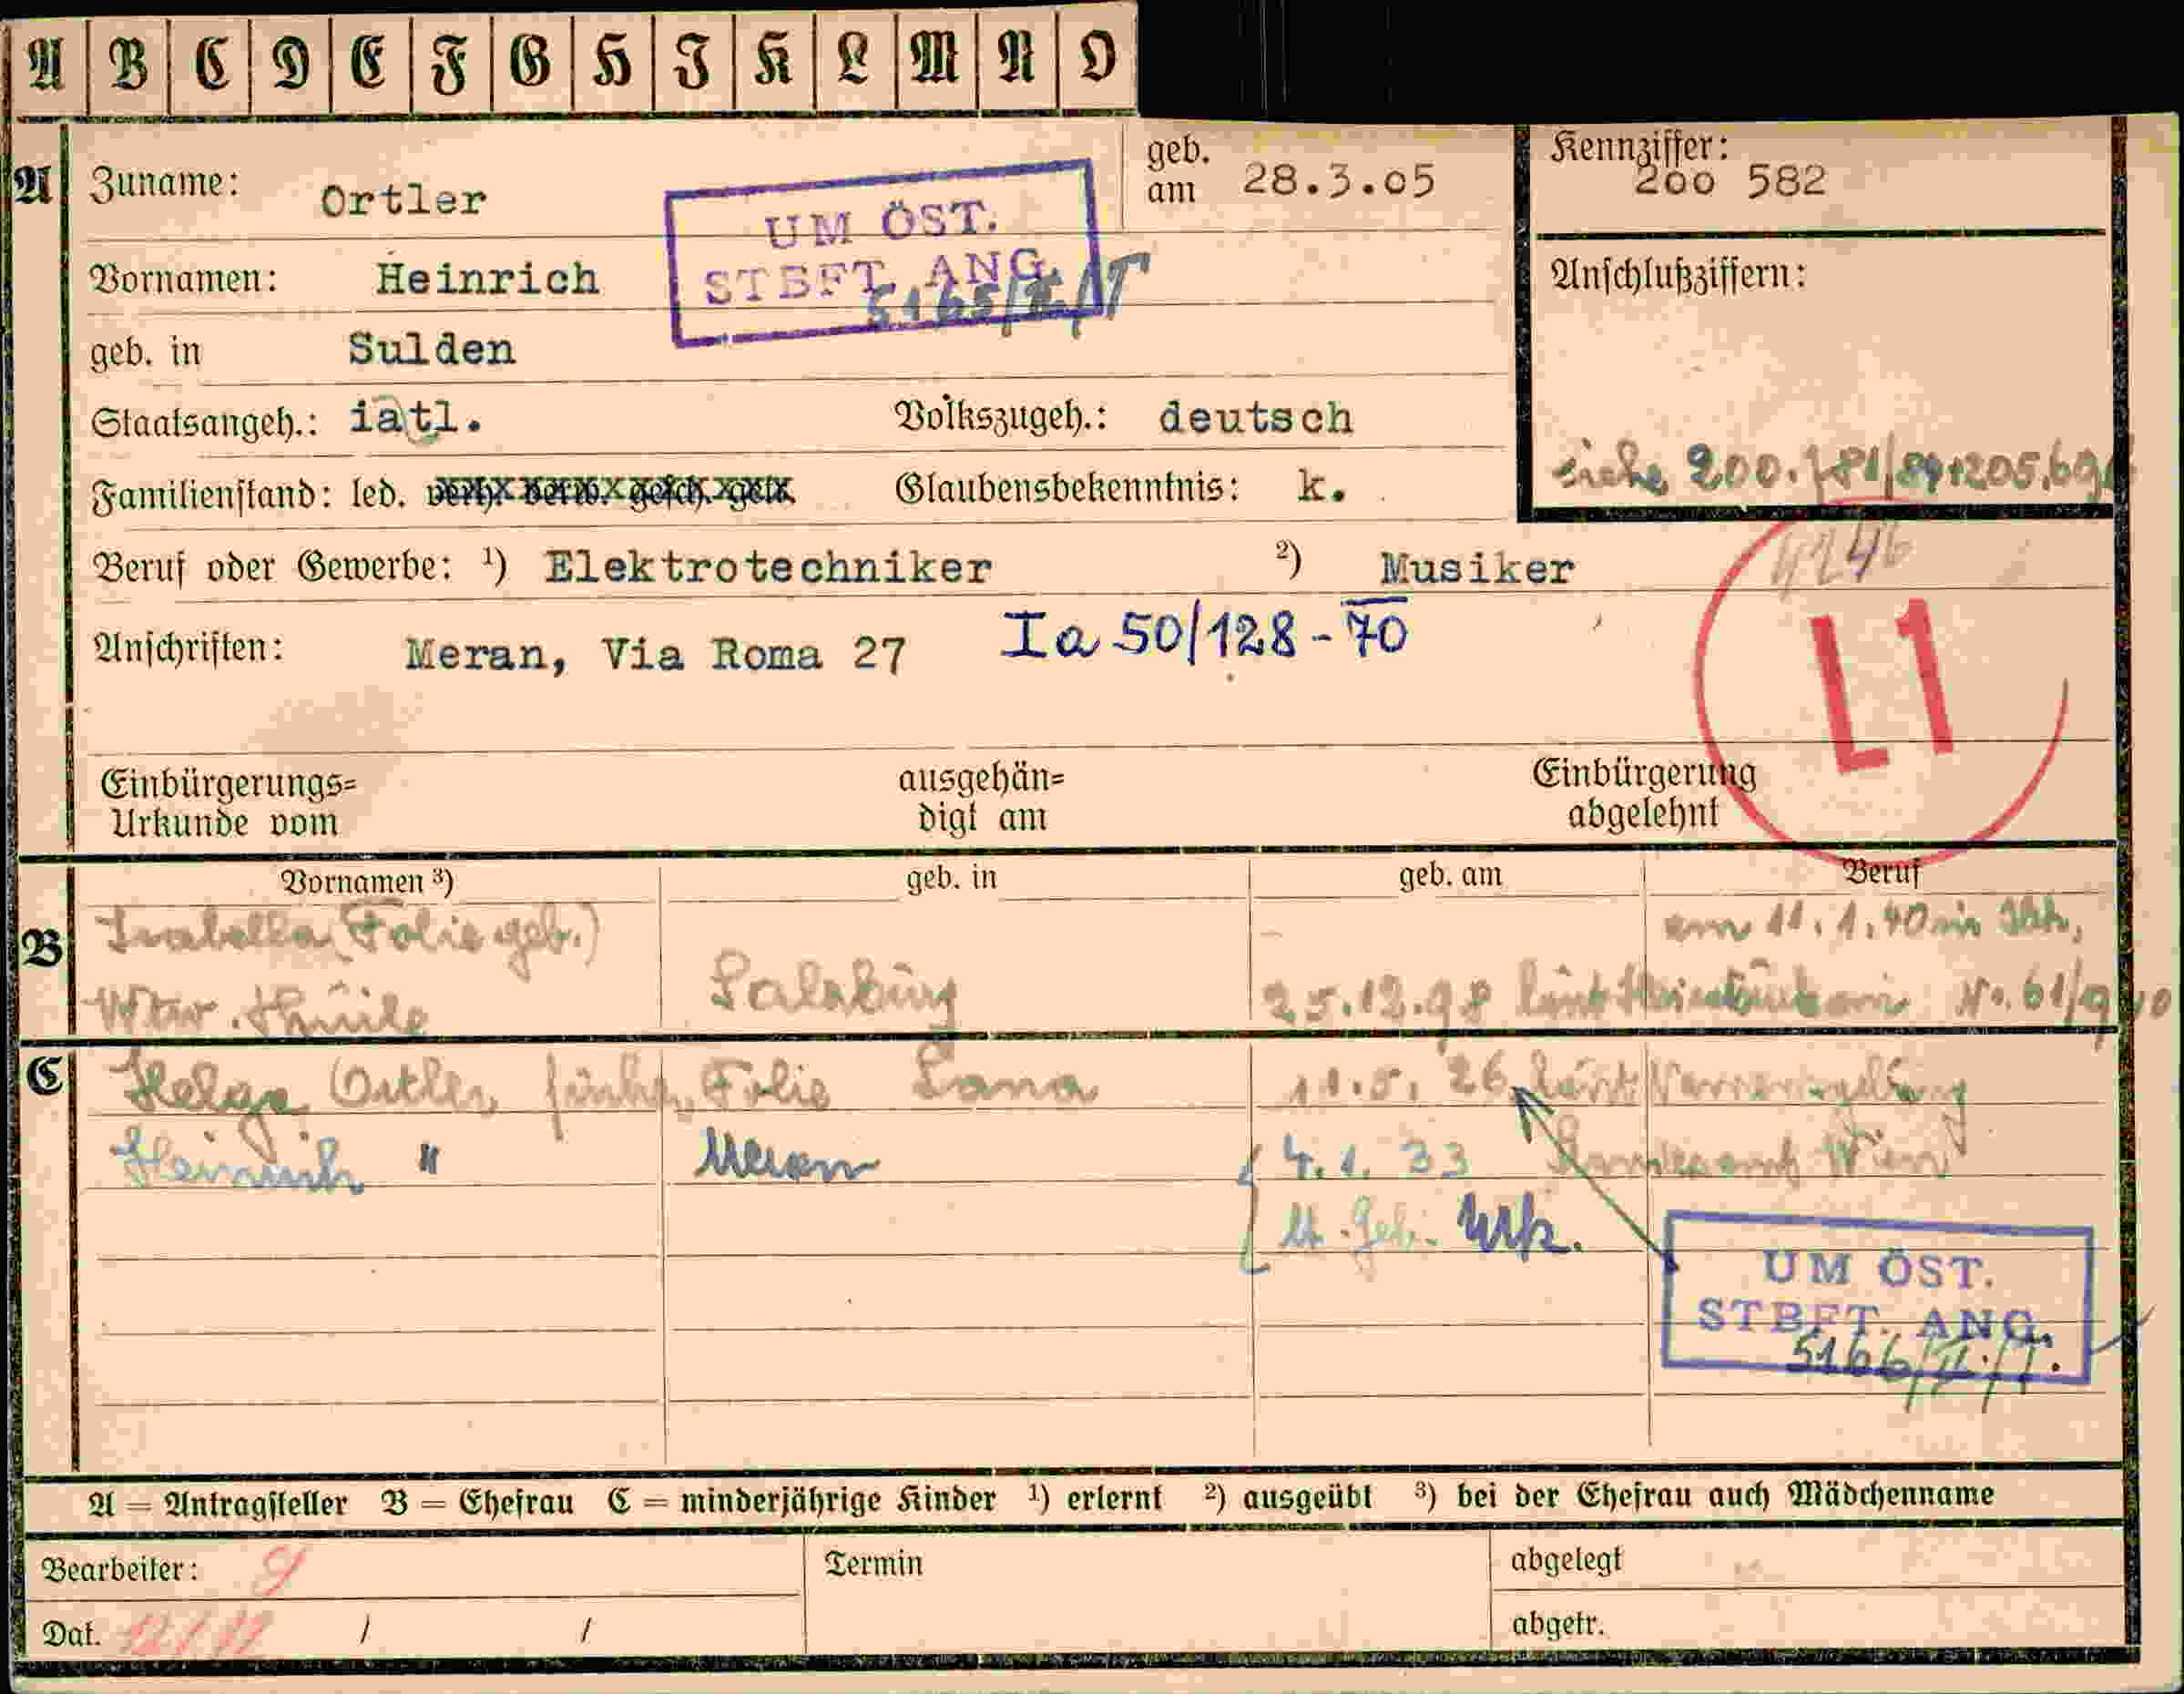 A B C D E F G H I K L M N O
A Zuname: Ortler
geb. am 28.3.05
Kennziffer: 200 582
UM ÖST.
STBFT. ANG.
5165/II/T
Vornamen: Heinrich
Anschlußziffern:
geb. in Sulden
Staatsangeh.: iatl. Volkszugeh.: deutsch
siehe 200.781/89+205,69
Familienstand: led. verh. verw. gesch. getr. Glaubensbekenntnis: k.
4246
Beruf oder Gewerbe: ¹) Elektrotechniker ²) Musiker
Anschriften: Meran, Via Roma 27 Ia 50/128-70
L1
Einbürgerungs= ausgehän= Einbürgerung
Urkunde vom digt am abgelehnt
Vornamen ³) geb. in geb. am Beruf
B Isabella (Folie geb.) am 11.1.40 in Ibk,
Wtw. Thuile Salzburg 25.12.98 laut No. 61/1940
C Helga Ortler früher Folie Lana 11.5.26 laut Namensgebung
Heinrich " Meran 4.1.33 Standesamt Wien
lt. Geb. Urk.
UM ÖST.
STBFT. ANG.
5166/II./T.
A = Antragsteller B = Ehefrau C = minderjährige Kinder ¹) erlernt ²) ausgeübt ³) bei der Ehefrau auch Mädchenname
Bearbeiter: Termin abgelegt
Dat. / / abgetr.